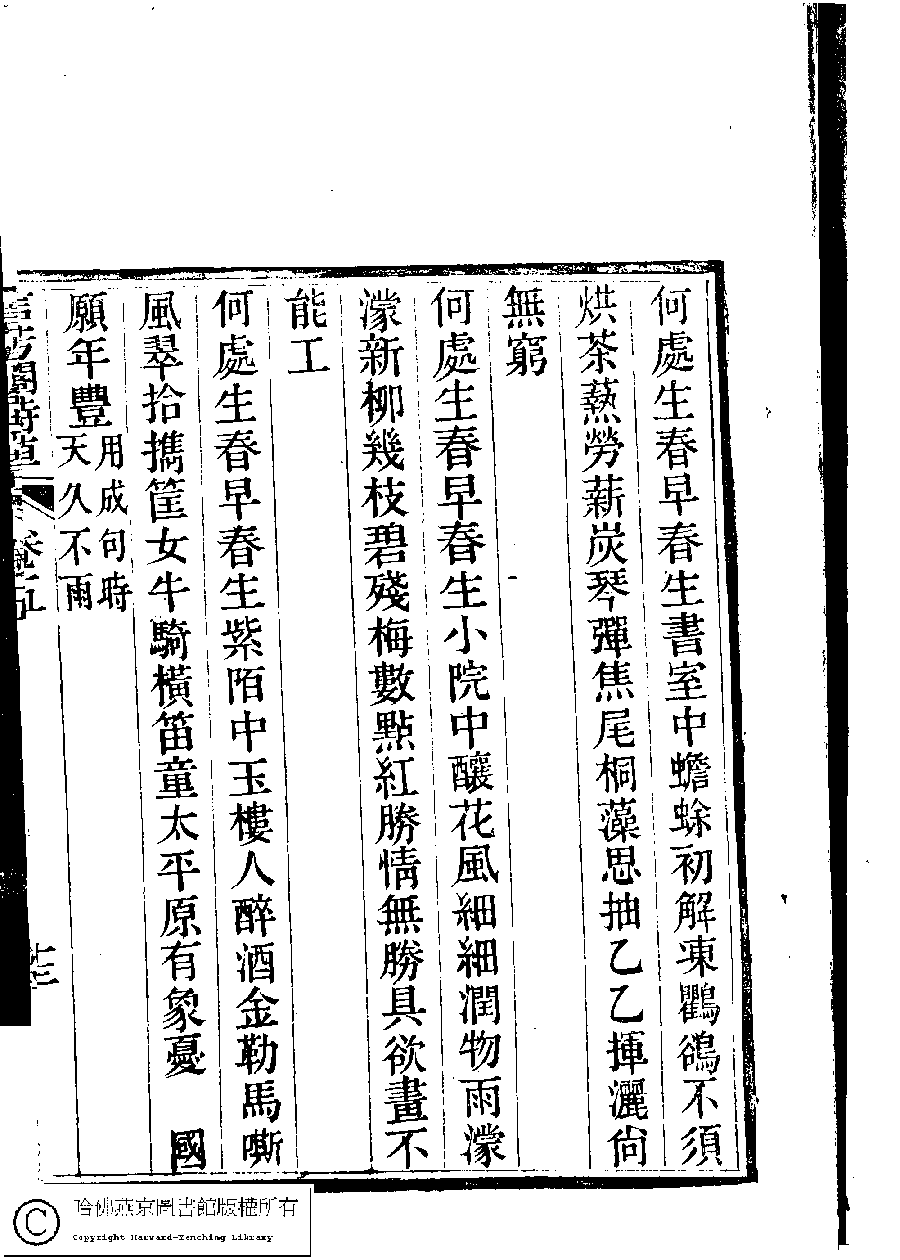 何處生春早春生書室中蟾蜍初解凍鸜鵒不須
烘茶爇勞薪炭琴彈焦尾桐藻思抽乙乙揮灑尙
無窮
何處生春早春生小院中釀花風細細潤物雨濛
濛新柳幾枝碧殘梅數點紅勝情無勝具欲畫不
能工
何處生春早春生紫陌中玉樓人醉酒金勒馬嘶
風翠拾攜筐女牛騎橫笛童太平原有象憂 國
願年豐用成句時
天久不雨
卷五
十三
哈佛燕京圖書館版權所有
Copyright Harvard-Yenching Library